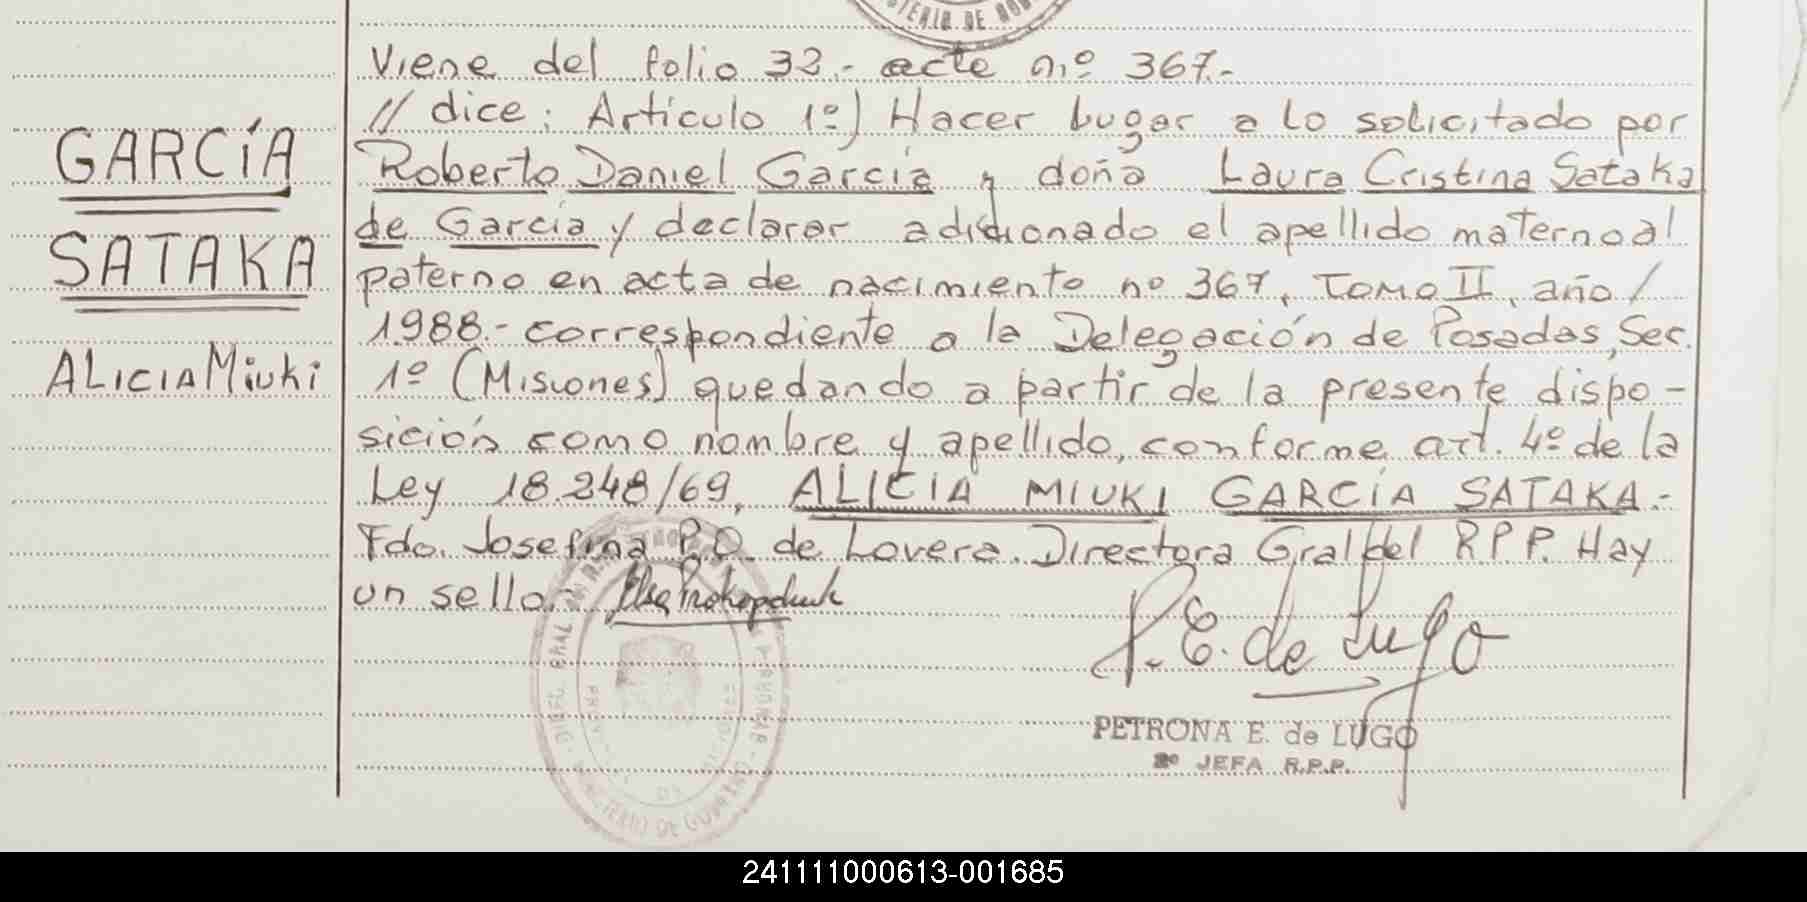 TERIO DE GOB
Viene del folio 32.- acta n.º 367.-
// dice: Artículo 1º) Hacer lugar a lo solicitado por
GARCÍA
Roberto Daniel García y doña Laura Cristina Sataka
de García y declarar adicionado el apellido materno al
SATAKA
paterno en acta de nacimiento nº 367, Tomo II, año /
1.988.- correspondiente a la Delegación de Posadas, Sec.
ALICIA Miuki
1º (Misiones) quedando a partir de la presente dispo-
sición como nombre y apellido, conforme art. 4º de la
Ley 18.248/69, ALICIA MIUKI GARCÍA SATAKA.-
Fdo. Josefina P.O. de Lovera. Directora Gral del R P P. Hay
un sello.- Elsa Prokopchuk
P. E. de Lugo
PETRONA E. de LUGO
2º JEFA R.P.P.
241111000613-001685